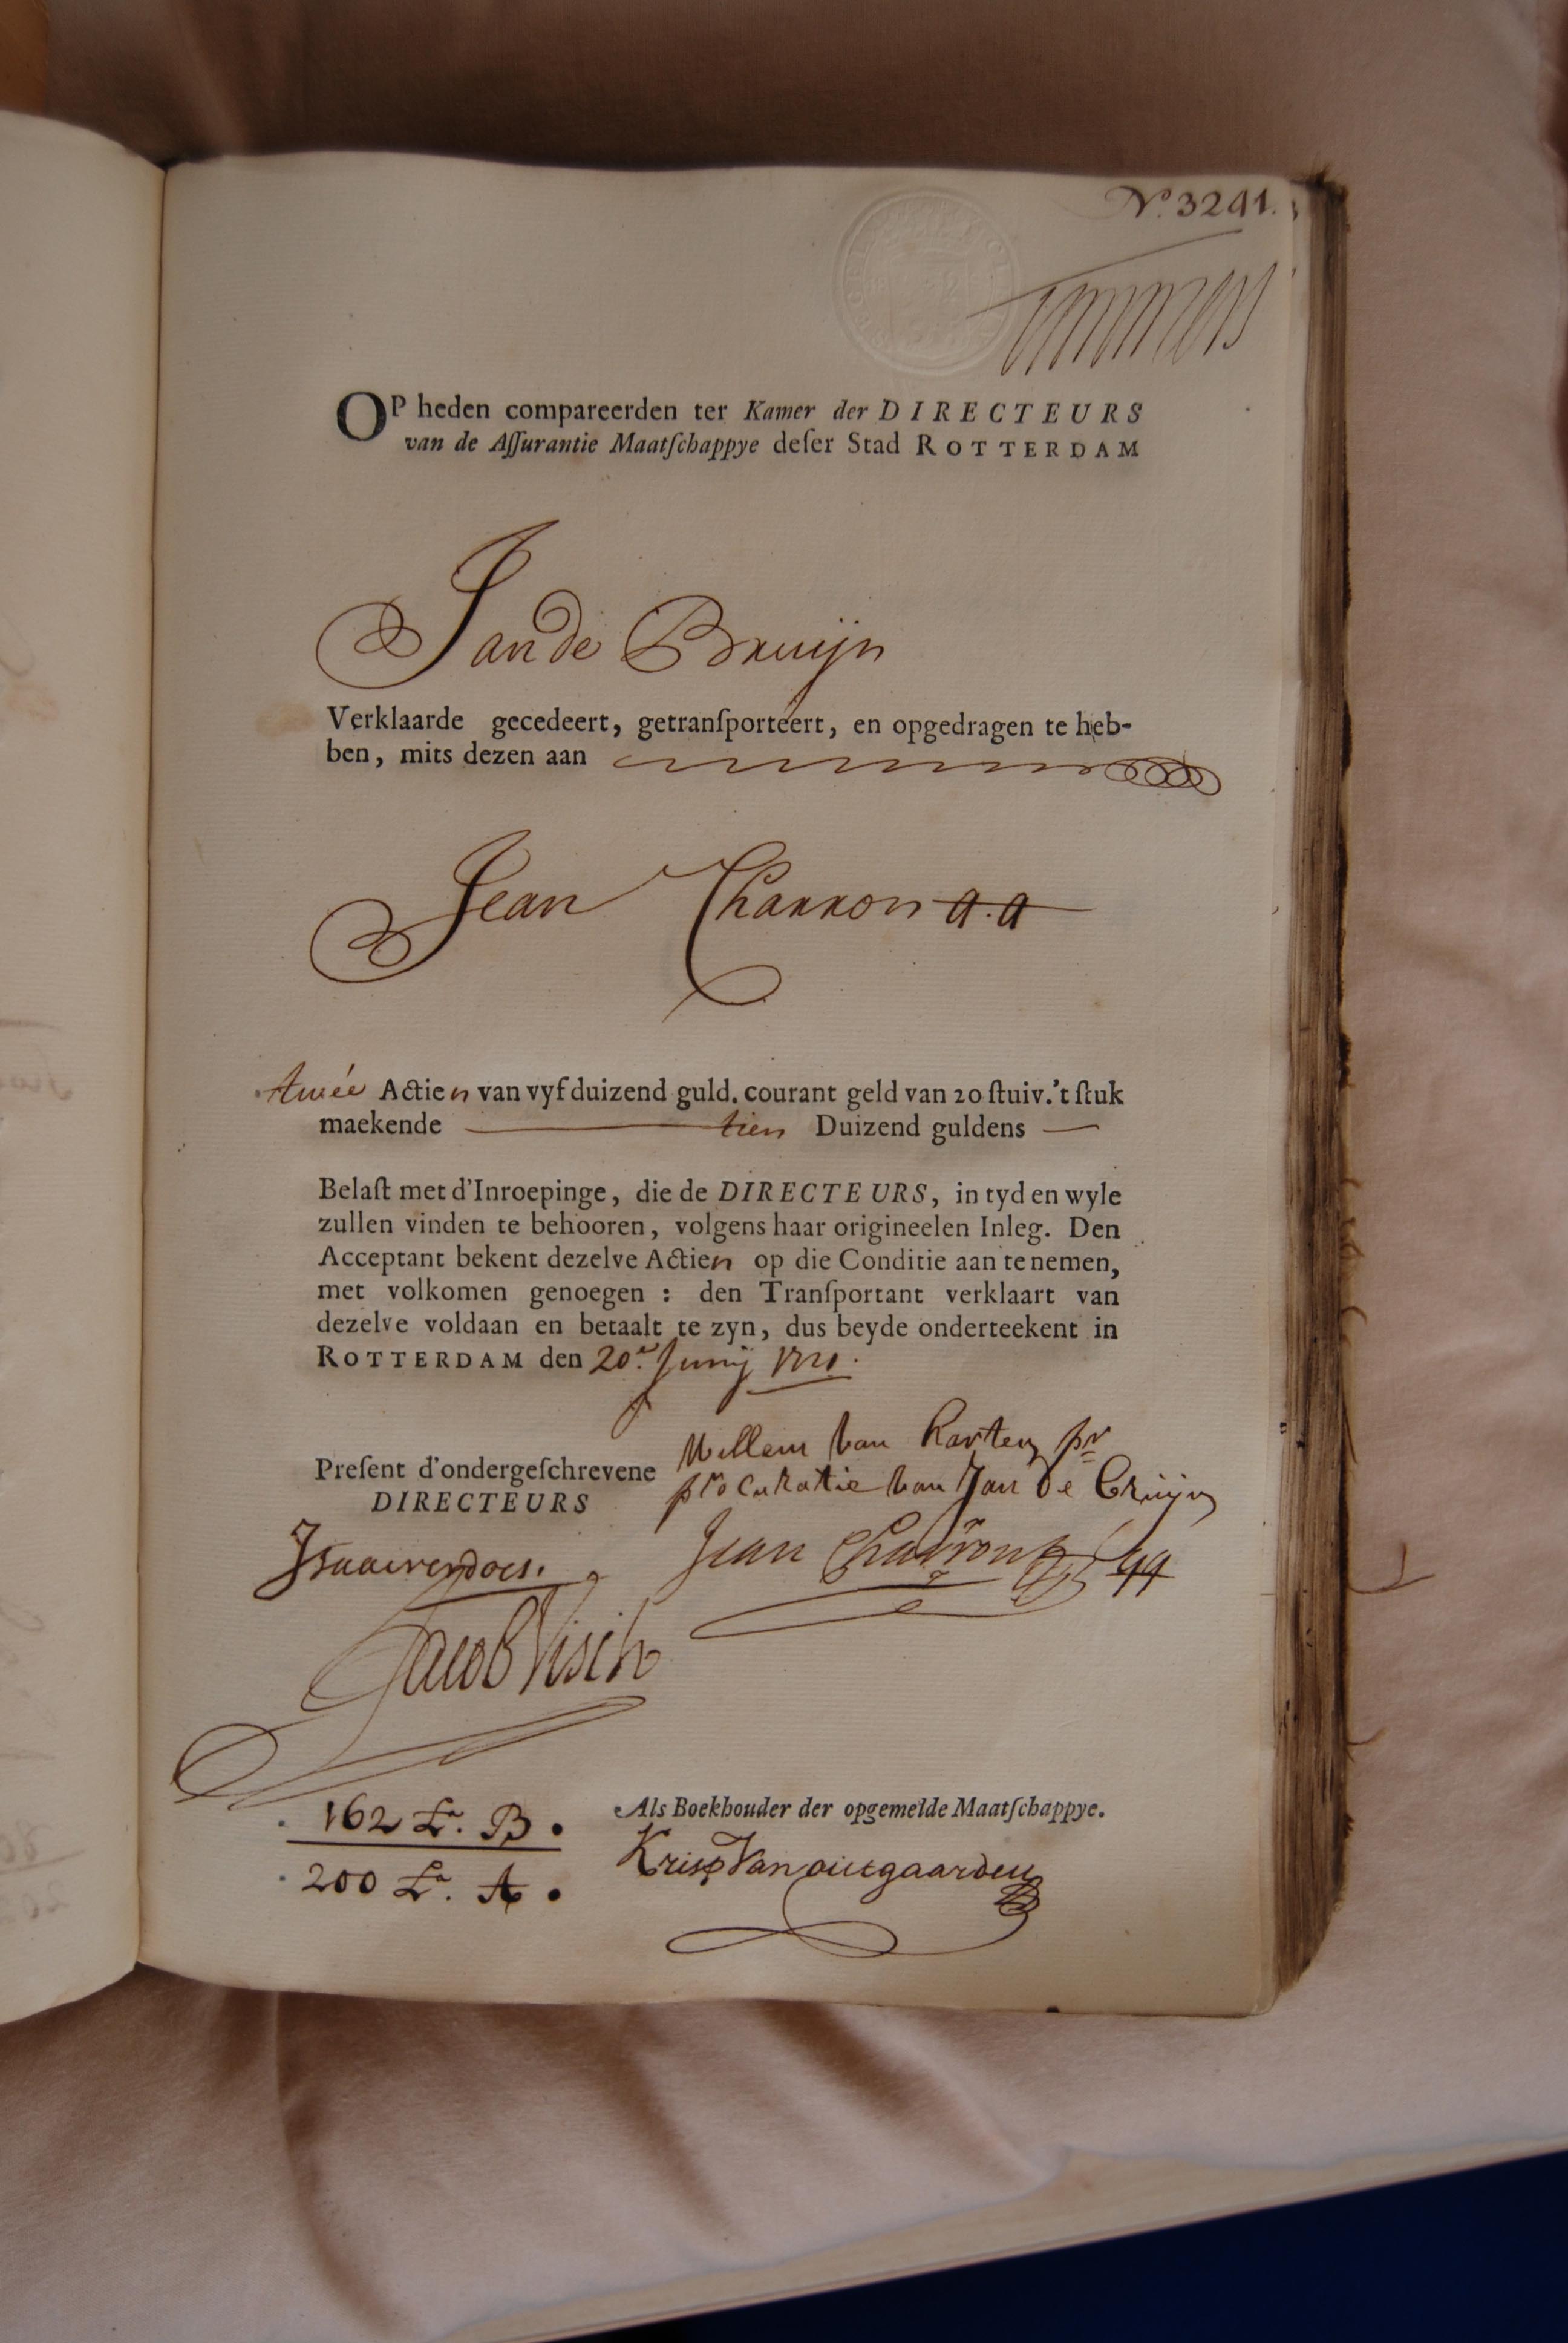 No. 3241.
OP heden compareerden ter Kamer der DIRECTEURS
van de Aſſurantie Maatſchappye deſer Stad ROTTERDAM
Jan de Bruijn
Verklaarde gecedeert, getranſporteert, en opgedragen te heb-
ben, mits dezen aan
Jean Charron a.a
twée Actien van vyf duizend guld. courant geld van 20 ſtuiv. 't ſtuk
maekende tien Duizend guldens
Belaſt met d'Inroepinge, die de DIRECTEURS, in tyd en wyle
zullen vinden te behooren, volgens haar origineelen Inleg. Den
Acceptant bekent dezelve Actien op die Conditie aan te nemen,
met volkomen genoegen : den Tranſportant verklaart van
dezelve voldaan en betaalt te zyn, dus beyde onderteekent in
ROTTERDAM den 20e Junij
Willem van pr
Preſent d'ondergeſchrevene
procuratie van Jan de Bruijn
DIRECTEURS
Jean Charron
Jacob Visch
162 La. B.
Als Boekhouder der opgemelde Maatſchappye.
200 La. A.
Kris Van outgaarden